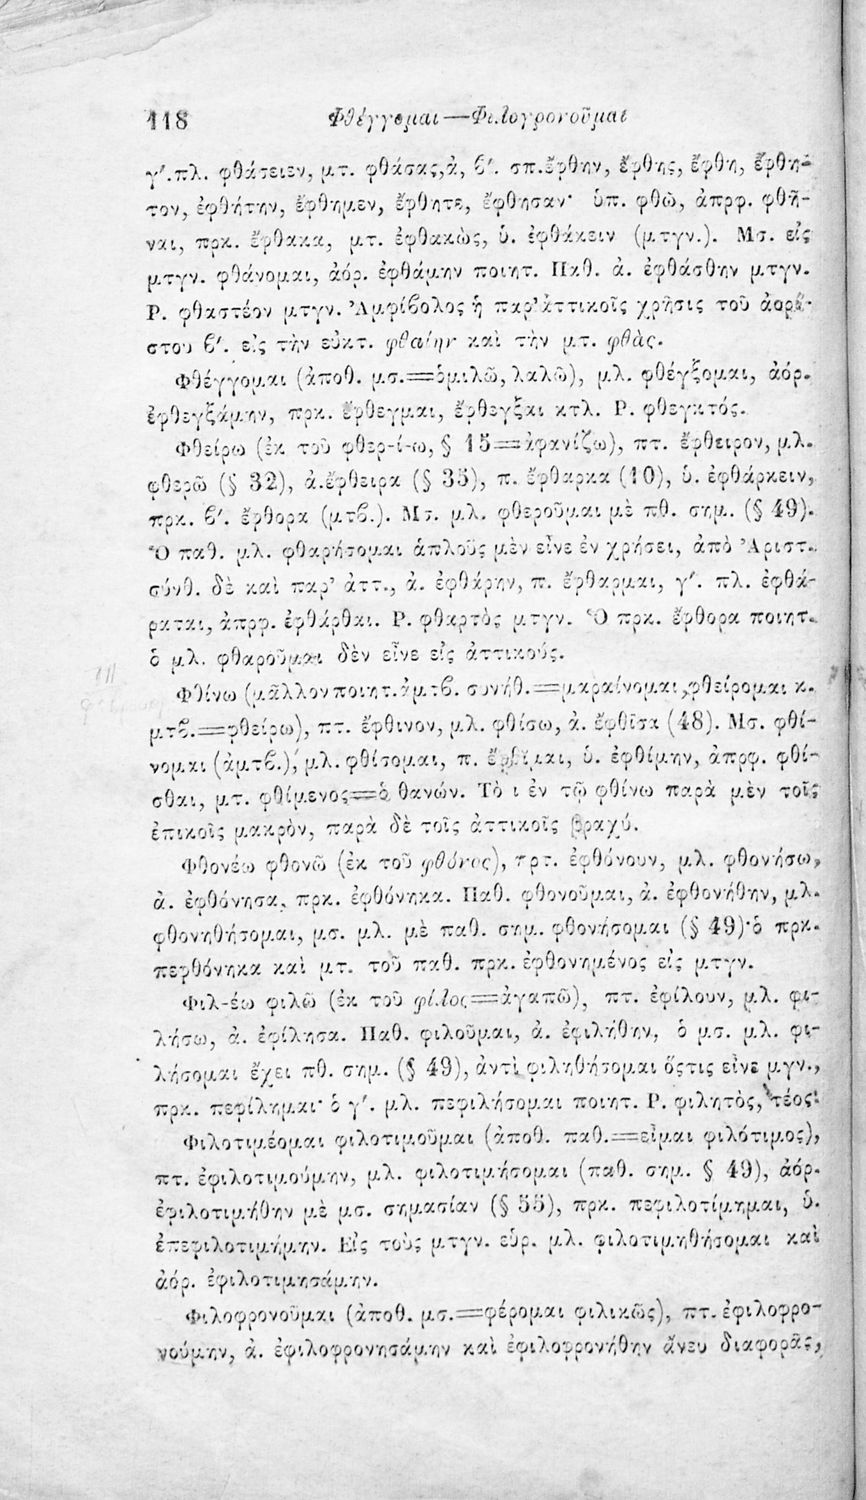 118 Φθέγγομαι—Φιλοφρονοῦμαι
γ΄.πλ. φθάσειεν, μτ. φθάσας,ᾶ, β΄. σπ.ἔφθην, ἔφθης, ἔφθη, ἔφθη-
τον, ἐφθήτην, ἔφθημεν, ἔφθητε, ἔφθησαν· ὑπ. φθῶ, ἀπρφ. φθῆ-
ναι, πρκ. ἔφθακα, μτ. ἐφθακὼς, ὑ. ἐφθάκειν (μτγν.). Μσ. εἰς
μτγν. φθάνομαι, ἀόρ. ἐφθάμην ποιητ. Παθ. ἀ. ἐφθάσθην μτγν.
Ρ. φθαστέον μτγν. Ἀμφίβολος ἡ παρ' ἀττικοῖς χρῆσις τοῦ ἀορί-
στου β΄. εἰς τὴν εὐκτ. φθαίην καὶ τὴν μτ. φθάς.
Φθέγγομαι (ἀποθ. μσ.=ὁμιλῶ, λαλῶ), μλ. φθέγξομαι, ἀόρ.
ἐφθεγξάμην, πρκ. ἔφθεγμαι, ἔφθεγξαι κτλ. Ρ. φθεγκτός.
Φθείρω (ἐκ τοῦ φθερ-ί-ω, § 15=ἀφανίζω), πτ. ἔφθειρον, μλ.
φθερῶ (§ 32), ἀ.ἔφθειρα (§ 35), π. ἔφθαρκα (40), ὑ. ἐφθάρκειν,
πρκ. β΄. ἔφθορα (μτβ.). Μσ. μλ. φθεροῦμαι μὲ πθ. σημ. (§ 49).
Ὁ παθ. μλ. φθαρήσομαι ἁπλοῦς μὲν εἶνε ἐν χρήσει, ἀπὸ Ἀριστ.
σύνθ. δὲ καὶ παρ' ἀττ., ἀ. ἐφθάρην, π. ἔφθαρμαι, γ΄. πλ. ἐφθά-
ραται, ἀπρφ. ἐφθάρθαι. Ρ. φθαρτὸς μτγν. Ὁ πρκ. ἔφθορα ποιητ.
ὁ μλ. φθαροῦμαι δὲν εἶνε εἰς ἀττικούς.
Φθίνω (μᾶλλον ποιητ.ἀμτβ. συνήθ.=μαραίνομαι, φθείρομαι κ.
μτβ.=φθείρω), πτ. ἔφθινον, μλ. φθίσω, ἀ. ἔφθῖσα (48). Μσ. φθί-
νομαι (ἀμτβ.), μλ. φθίσομαι, π. ἔφθιμαι, ὑ. ἐφθίμην, ἀπρφ. φθί-
σθαι, μτ. φθίμενος=ὁ θανών. Τὸ ι ἐν τῷ φθίνω παρὰ μὲν τοῖς
ἐπικοῖς μακρὸν, παρὰ δὲ τοῖς ἀττικοῖς βραχύ.
Φθονέω φθονῶ (ἐκ τοῦ φθόνος), πρτ. ἐφθόνουν, μλ. φθονήσω,
ἀ. ἐφθόνησα, πρκ. ἐφθόνηκα. Παθ. φθονοῦμαι, ἀ. ἐφθονήθην, μλ.
φθονηθήσομαι, μσ. μλ. μὲ παθ. σημ. φθονήσομαι (§ 49)· ὁ πρκ.
πεφθόνηκα καὶ μτ. τοῦ παθ. πρκ. ἐφθονημένος εἰς μτγν.
Φιλ-έω φιλῶ (ἐκ τοῦ φίλος=ἀγαπῶ), πτ. ἐφίλουν, μλ. φι-
λήσω, ἀ. ἐφίλησα. Παθ. φιλοῦμαι, ἀ. ἐφιλήθην, ὁ μσ. μλ. φι-
λήσομαι ἔχει πθ. σημ. (§ 49), ἀντὶ φιληθήσομαι ὅςτις εἶνε μγν.,
πρκ. πεφίλημαι· ὁ γ΄. μλ. πεφιλήσομαι ποιητ. Ρ. φιλητὸς, τέος.
Φιλοτιμέομαι φιλοτιμοῦμαι (ἀποθ. παθ.=εἶμαι φιλότιμος),
πτ. ἐφιλοτιμούμην, μλ. φιλοτιμήσομαι (παθ. σημ. § 49), ἀόρ.
ἐφιλοτιμήθην μὲ μσ. σημασίαν (§ 55), πρκ. πεφιλοτίμημαι, ὑ.
ἐπεφιλοτιμήμην. Εἰς τοὺς μτγν. εὑρ. μλ. φιλοτιμηθήσομαι καὶ
ἀόρ. ἐφιλοτιμησάμην.
Φιλοφρονοῦμαι (ἀποθ. μσ.=φέρομαι φιλικῶς), πτ. ἐφιλοφρο-
νούμην, ἀ. ἐφιλοφρονησάμην καὶ ἐφιλοφρονήθην ἄνευ διαφορᾶς,